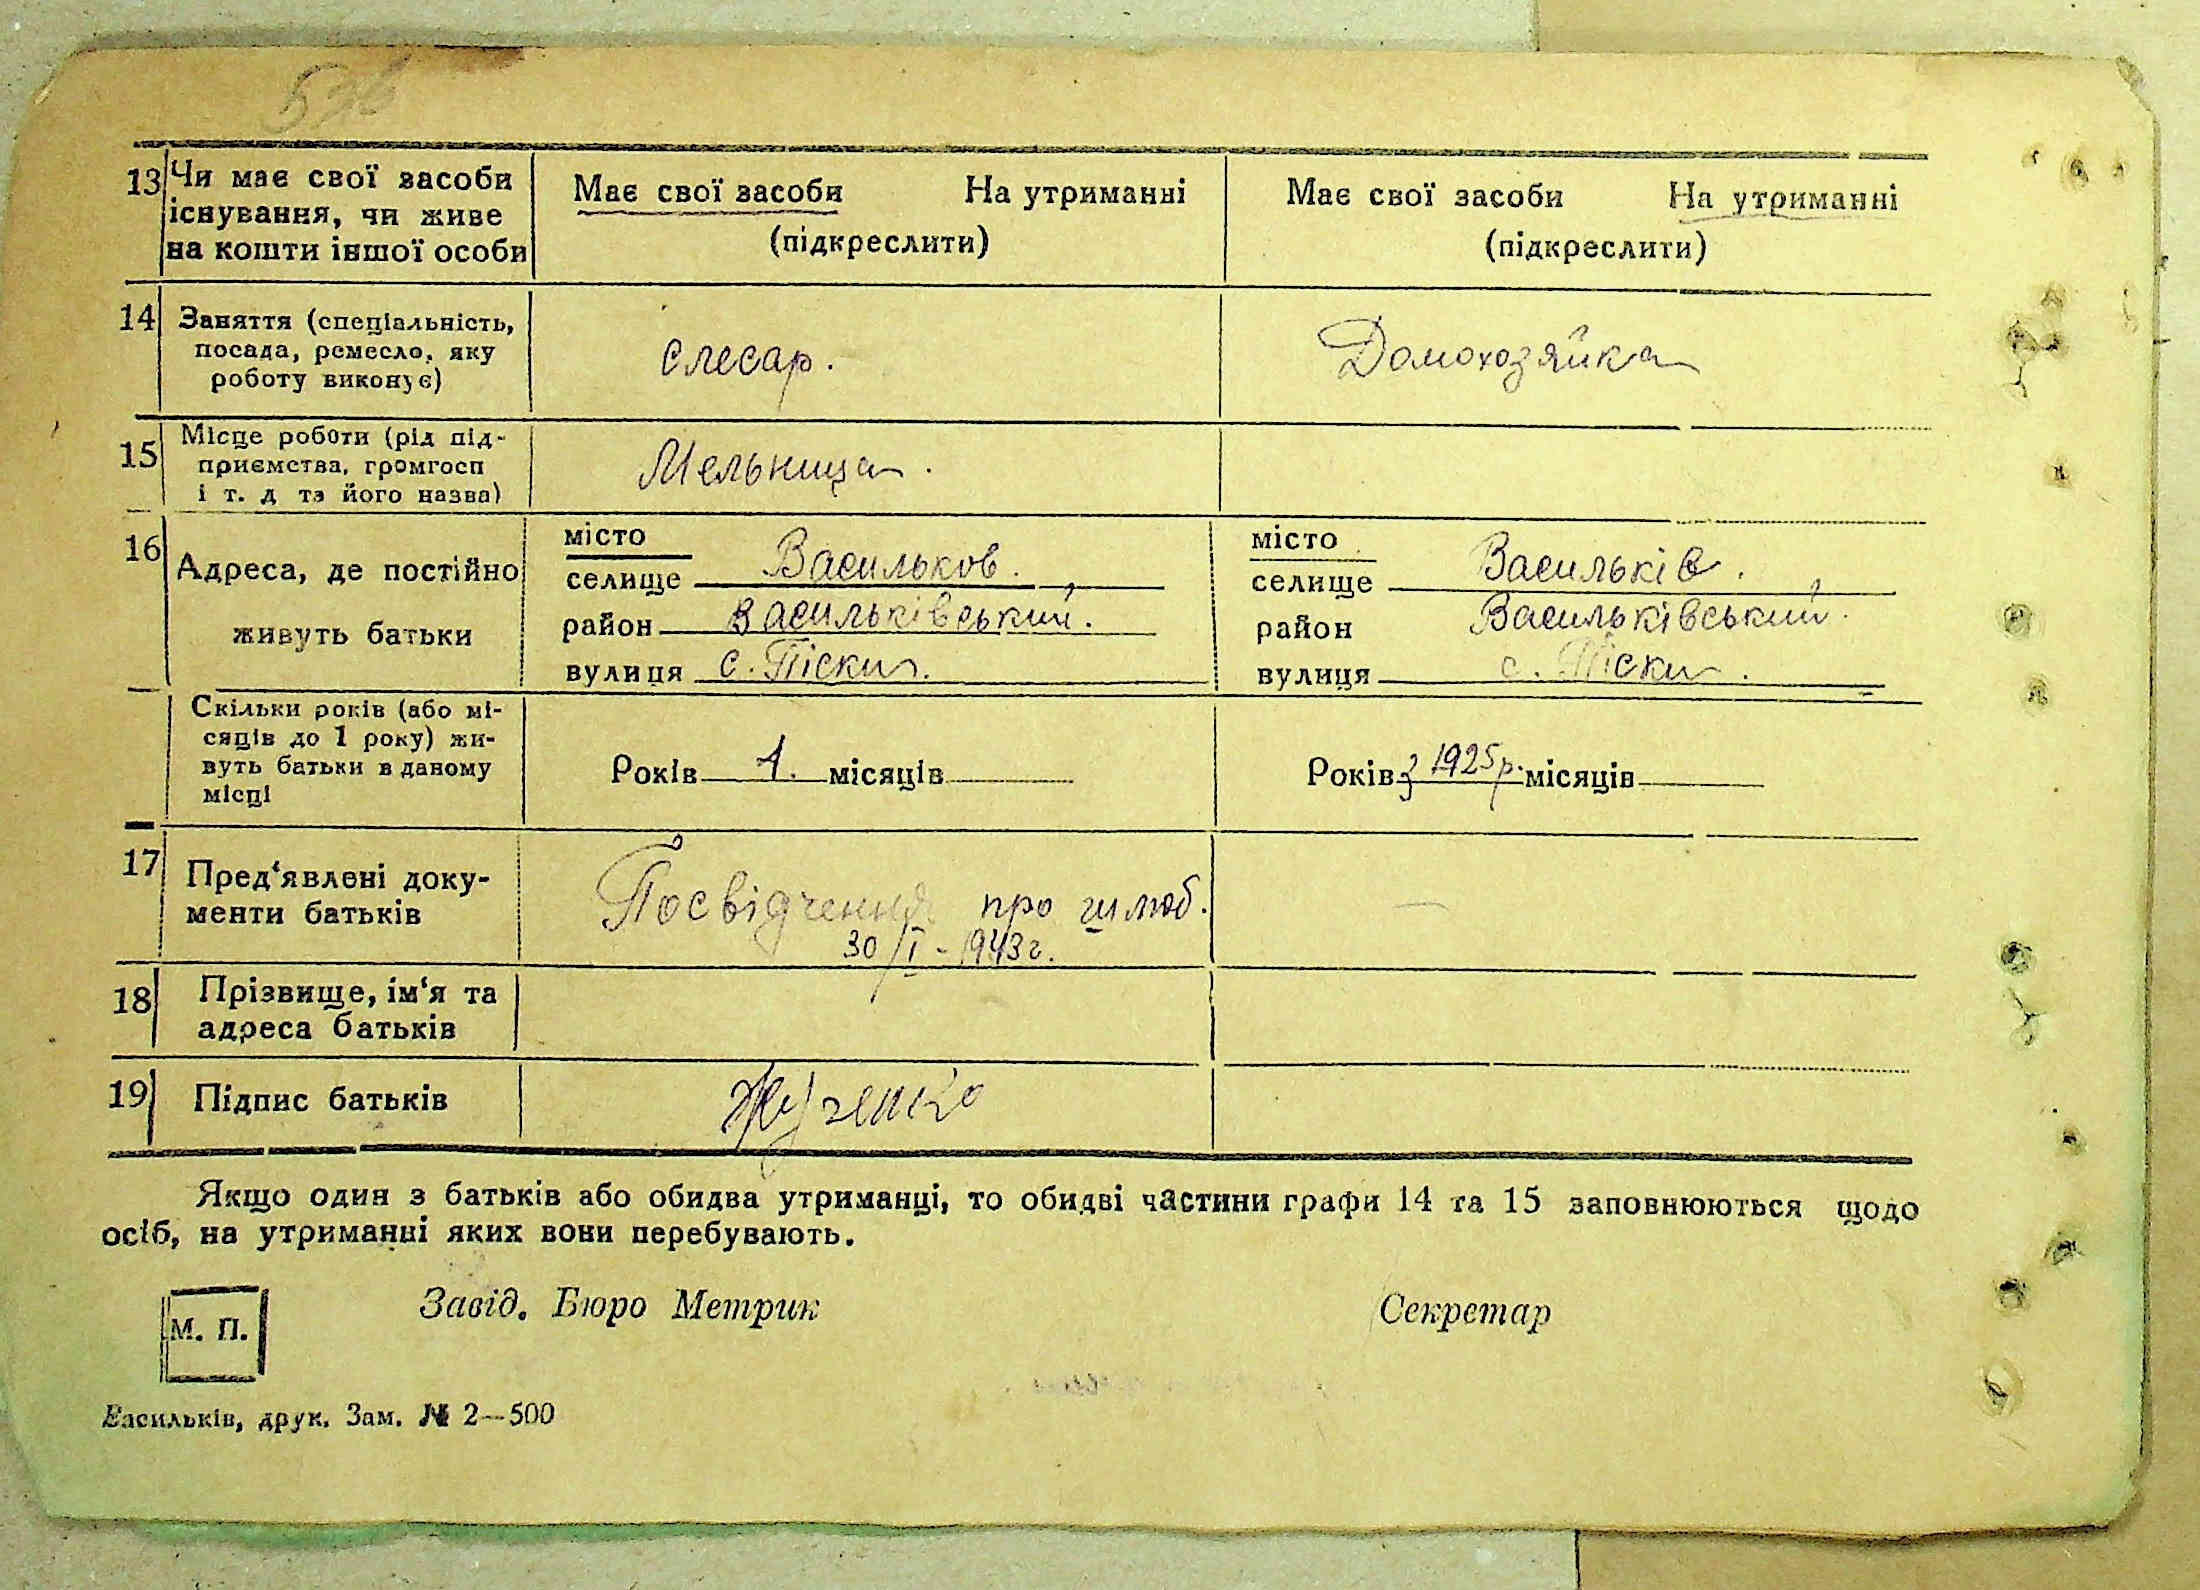 13 Чи має свої засоби
існування, чи живе
на кошти іншої особи
Має свої засоби На утриманні
(підкреслити)
Має свої засоби На утриманні
(підкреслити)
14 Заняття (спеціальність,
посада, ремесло, яку
роботу виконує)
Слесар.
Домохозяйка
15 Місце роботи (рід під-
приємства, громгосп
і т. д та його назва)
Мельница.
16 Адреса, де постійно
живуть батьки
місто
селище Васильков.
район Васильківський.
вулиця с. Піски.
місто
селище Васильків.
район Васильківський.
вулиця с. Піски.
Скільки років (або мі-
сяців до 1 року) жи-
вуть батьки в даному
місці
Років 1. місяців
Років з 1925 р. місяців
17 Пред'явлені доку-
менти батьків
Посвідчення про шлюб.
30/I - 1943 г.
18 Прізвище, ім'я та
адреса батьків
19 Підпис батьків
Якщо один з батьків або обидва утриманці, то обидві частини графи 14 та 15 заповнюються щодо
осіб, на утриманні яких вони перебувають.
М. П.
Завід. Бюро Метрик
Секретар
Васильків, друк. Зам. № 2—500